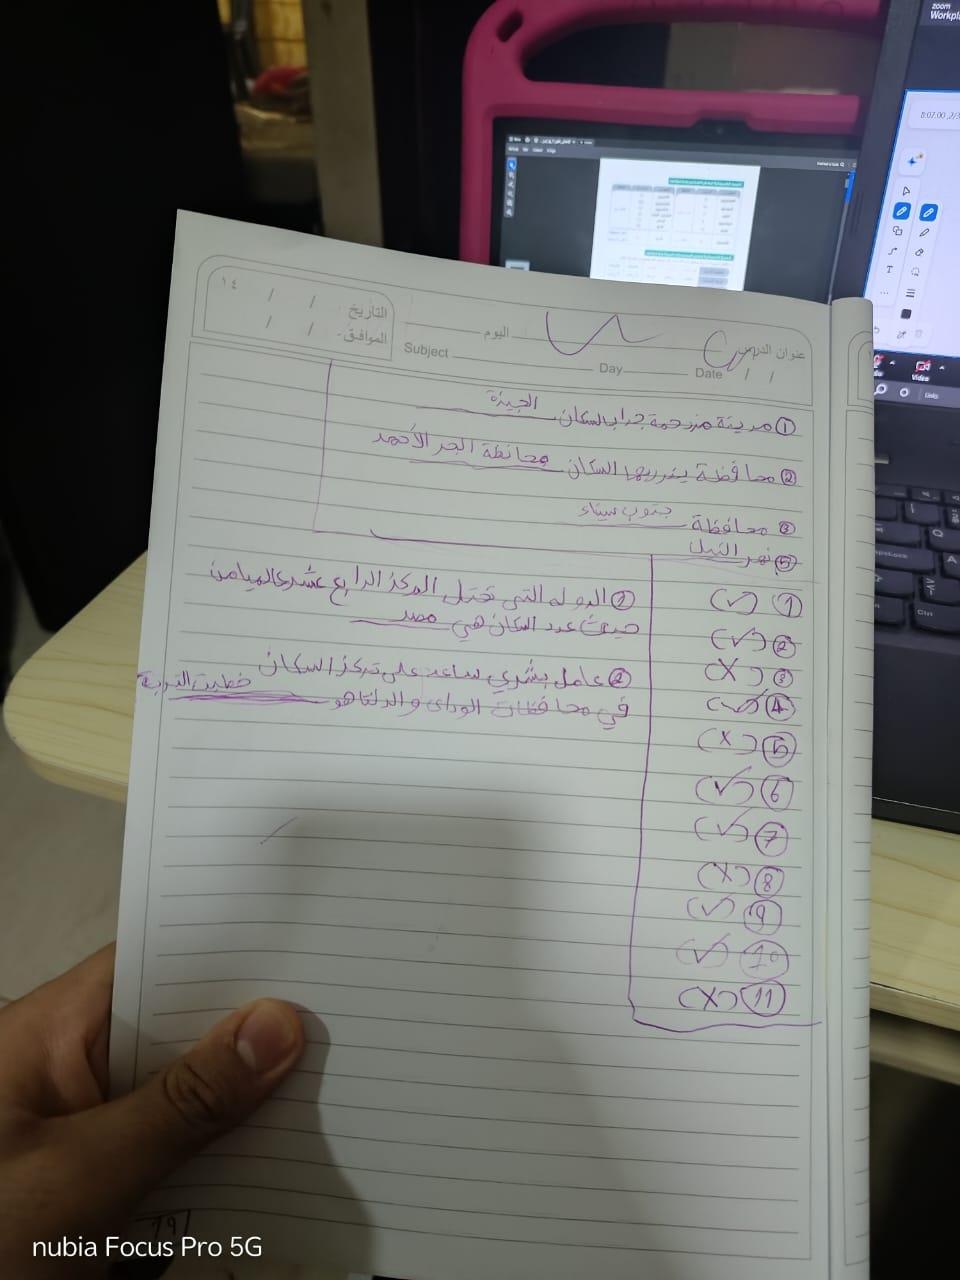 عنوان الدرس
اليوم
التاريخ: / / ١٤
الموافق: / /
Date / / Day Subject
① مدينة مزدحمة جدا بالسكان الجيزة
② محافظة يندر بها السكان محافظة البحر الأحمد
③ محافظة جنوب سيناء
⑤ نهر النيل
① (✓)
② (✓)
③ (X)
④ (✓)
⑤ (X)
⑥ (✓)
⑦ (✓)
⑧ (X)
⑨ (✓)
⑩ (✓)
⑪ (X)
① الدوله التي تحتل المركز الرابع عشر عالميا من
حيث عدد السكان هي مصر
② عامل بشري ساعد على تركز السكان
في محافظات الوادى والدلتا هو
التربة
19
zoom
Workpla
Video
Links
nubia Focus Pro 5G